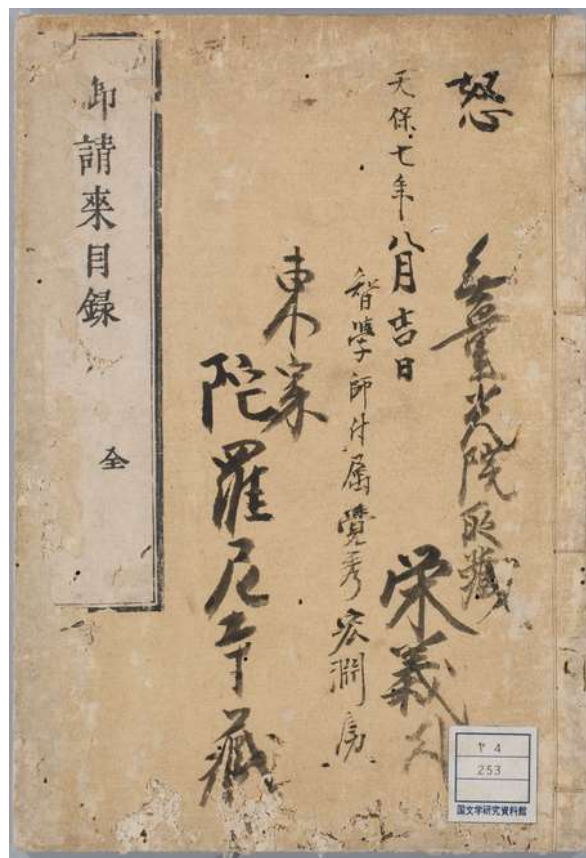 怒
無量光院所蔵
栄義
天保七年八月吉日
智學師付属覺秀宏淵房
東家
陀羅尼寺蔵
御請來目録
全
ヤ4
253
国文学研究資料館